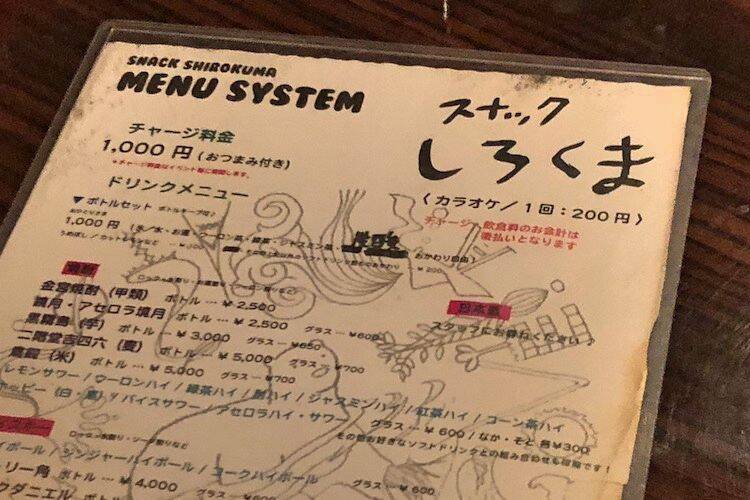 SNACK SHIROKUMA
MENU SYSTEM
スナック
しろくま
〈カラオケ/1回:200円〉
チャージ、飲食料のお会計は
後払いとなります
チャージ料金
1,000円(おつまみ付き)
ドリンクメニュー
▼ボトルセット
1,000円
おかわり自由
¥200
焼酎
金宮焼酎(甲類) ボトル…¥2,500
鏡月・アセロラ鏡月 ボトル…¥2,500 グラス…¥600
黒霧島(芋) ボトル…¥3,000 グラス…¥650
二階堂吉四六(麦) ボトル…¥5,000 グラス…¥700
(米) ボトル…¥5,000 グラス…¥700
レモンサワー/ウーロンハイ/緑茶ハイ/ ジャスミンハイ/紅茶ハイ/コーン茶ハイ
バイスサワー/アセロラハイ・サワー グラス…¥600/なか・そと各¥300
その他お好きなソフトドリンクとの組み合わせも可能です!
日本酒
スタッフにお尋ねください
ハイボール/ジンジャーハイボール/コークハイボール グラス…¥600
リー角 ボトル…¥4,000 グラス…¥600
クダニエル ボトル